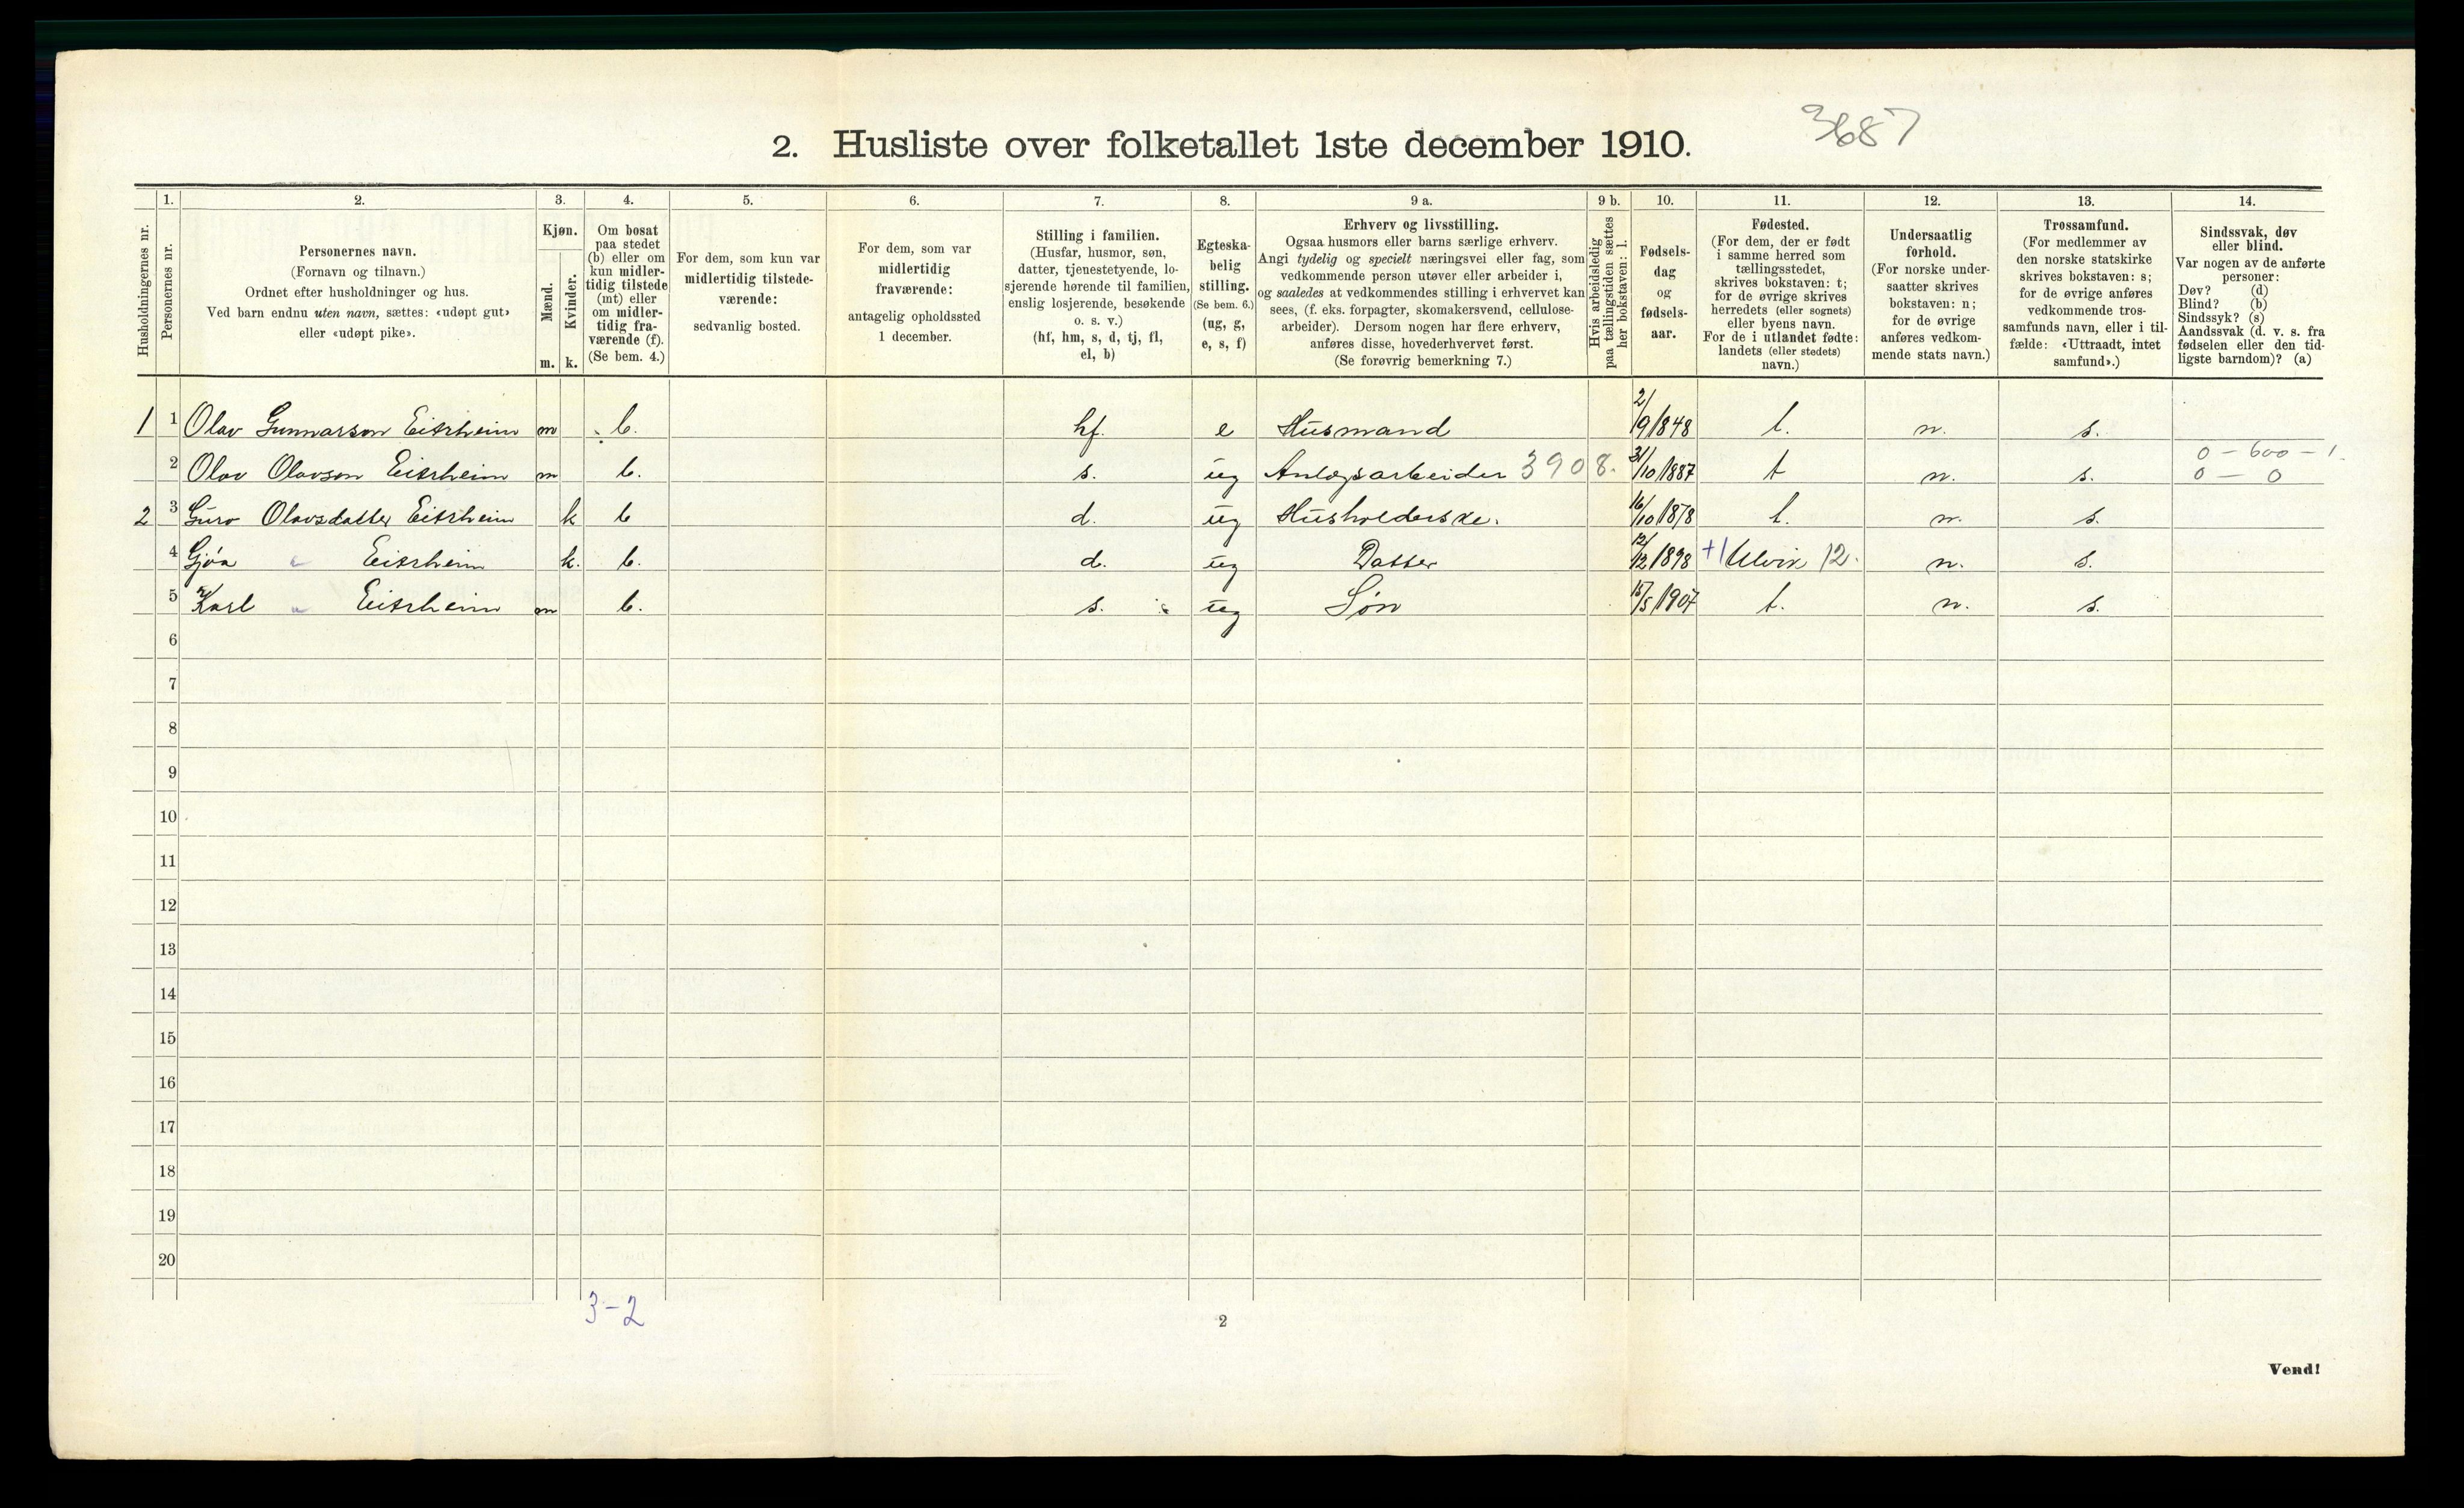 3687
2. Husliste over folketallet 1ste december 1910.
Husholdningernes nr.
1.
Personernes nr.
2.
Personernes navn.
(Fornavn og tilnavn.)
Ordnet efter husholdninger og hus.
Ved barn endnu uten navn, sættes: «udøpt gut»
eller «udøpt pike».
3.
Kjøn.
Mænd.
Kvinder.
m. k.
4.
Om bosat
paa stedet
(b) eller om
kun midler-
tidig tilstede
(mt) eller
om midler-
tidig fra-
værende (f).
(Se bem. 4.)
5.
For dem, som kun var
midlertidig tilstede-
værende:
sedvanlig bosted.
6.
For dem, som var
midlertidig
fraværende:
antagelig opholdssted
1 december.
7.
Stilling i familien.
(Husfar, husmor, søn,
datter, tjenestetyende, lo-
sjerende hørende til familien,
enslig losjerende, besøkende
o. s. v.)
(hf, hm, s, d, tj, fl,
el, b)
8.
Egteska-
belig
stilling.
(Se bem. 6.)
(ug, g,
e, s, f)
9 a.
Erhverv og livsstilling.
Ogsaa husmors eller barns særlige erhverv.
Angi tydelig og specielt næringsvei eller fag, som
vedkommende person utøver eller arbeider i,
og saaledes at vedkommendes stilling i erhvervet kan
sees, (f. eks. forpagter, skomakersvend, cellulose-
arbeider). Dersom nogen har flere erhverv,
anføres disse, hovederhvervet først.
(Se forøvrig bemerkning 7.)
9 b.
Hvis arbeidsledig
paa tællingstiden sættes
her bokstaven: l.
10.
Fødsels-
dag
og
fødsels-
aar.
11.
Fødested.
(For dem, der er født
i samme herred som
tællingsstedet,
skrives bokstaven: t;
for de øvrige skrives
herredets (eller sognets)
eller byens navn.
For de i utlandet fødte:
landets (eller stedets)
navn.)
12.
Undersaatlig
forhold.
(For norske under-
saatter skrives
bokstaven: n;
for de øvrige
anføres vedkom-
mende stats navn.)
13.
Trossamfund.
(For medlemmer av
den norske statskirke
skrives bokstaven: s;
for de øvrige anføres
vedkommende tros-
samfunds navn, eller i til-
fælde: «Uttraadt, intet
samfund».)
14.
Sindssvak, døv
eller blind.
Var nogen av de anførte
personer:
Døv? (d)
Blind? (b)
Sindssyk? (s)
Aandssvak (d. v. s. fra
fødselen eller den tid-
ligste barndom)? (a)
1 1 Olav Gunnarson Eitrheim m b. hf. e Husmand 2/9 1848 t. n. s.
0 - 600 - 1.
2 Olav Olavson Eitrheim m b. s. ug Anlægsarbeider 3908. 31/10 1887 t n. s. 0 - 0
2 3 Guro Olavsdatter Eitrheim k b d. ug Husholderske. 16/10 1878 t. n. s.
4 Gjøa " Eitrheim k. b. d. ug Datter 12/12 1898 +1 Ulvik 12. n. s.
5 Karl " Eitrheim m b. s. ug Søn 15/5 1907 t. n. s.
6
7
8
9
10
11
12
13
14
15
16
17
18
19
20
3-2
2
Vend!